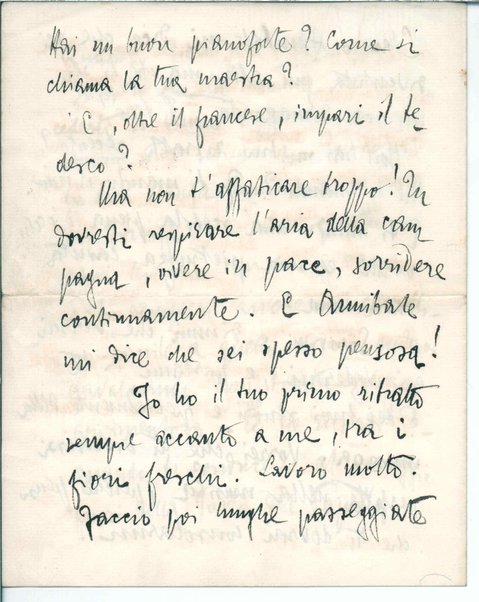 Hai un buon pianoforte? Come si
chiama la tua maestra?
E, oltre il francese, impari il te-
desco?
Ma non t'affaticare troppo! Tu
dovresti respirare l'aria della cam
pagna, vivere in pace, sorridere
continuamente. E Annibale
mi dice che sei spesso pensosa!
Io ho il tuo primo ritratto
sempre accanto a me, tra i
fiori freschi. Lavoro molto.
Faccio poi lunghe passeggiate